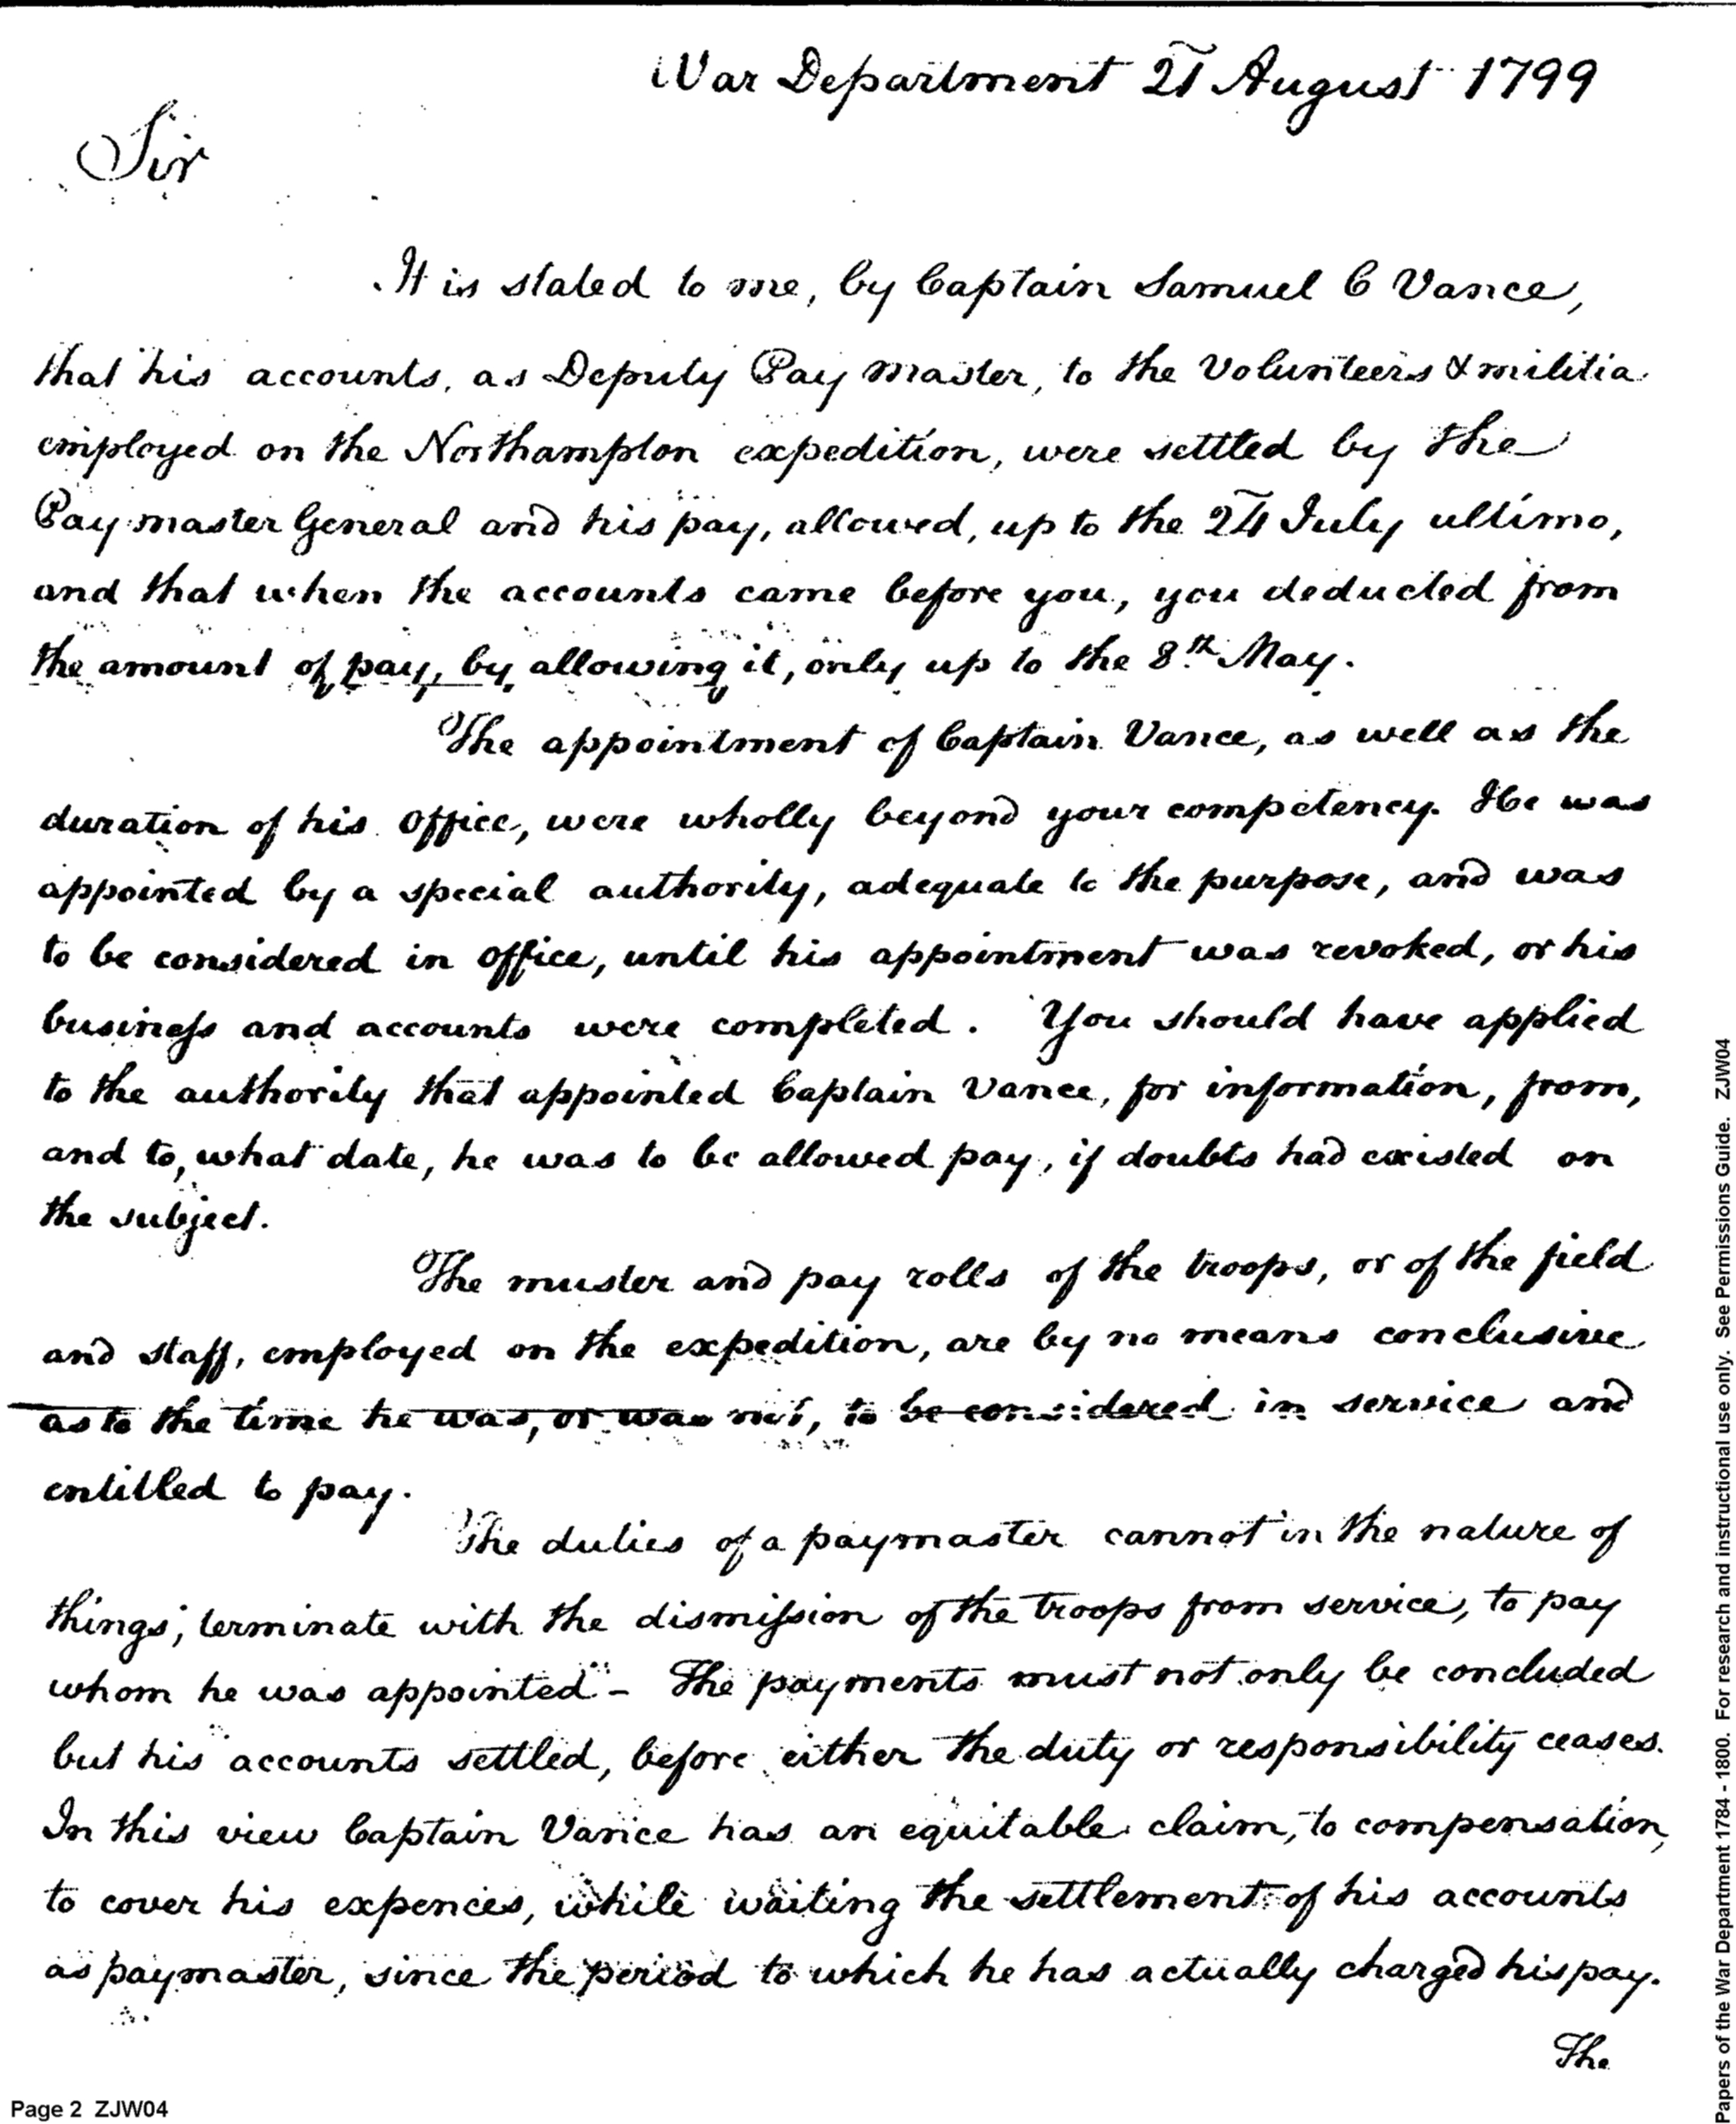 War Department 21 August 1799
Sir
It is stated to me, by Captain Samuel C Vance,
that his accounts, as Deputy Pay master, to the Volunteers & militia
employed on the Northampton expedition, were settled by the
Pay master General and his pay, allowed, up to the 24 July ultimo,
and that when the accounts came before you, you deducted from
the amount of pay, by allowing it, only up to the 8th May.
The appointment of Captain Vance, as well as the
duration of his office, were wholly beyond your competency. He was
appointed by a special authority, adequate to the purpose, and was
to be considered in office, until his appointment was revoked, or his
business and accounts were completed. You should have applied
to the authority that appointed Captain Vance, for information, from,
and to, what date, he was to be allowed pay, if doubts had existed on
the subject.
The muster and pay rolls of the troops, or of the field
and staff, employed on the expedition, are by no means conclusive
as to the time he was, or was not, to be considered in service and
entitled to pay.
The duties of a paymaster cannot in the nature of
things, terminate with the dismission of the troops from service, to pay
whom he was appointed - The payments must not only be concluded
but his accounts settled, before either the duty or responsibility ceases.
In this view Captain Vance has an equitable claim, to compensation,
to cover his expences, while waiting the settlement of his accounts
as paymaster, since the period to which he has actually charged his pay.
The
Page 2 ZJW04
Papers of the War Department 1784 - 1800. For research and instructional use only. See Permissions Guide. ZJW04